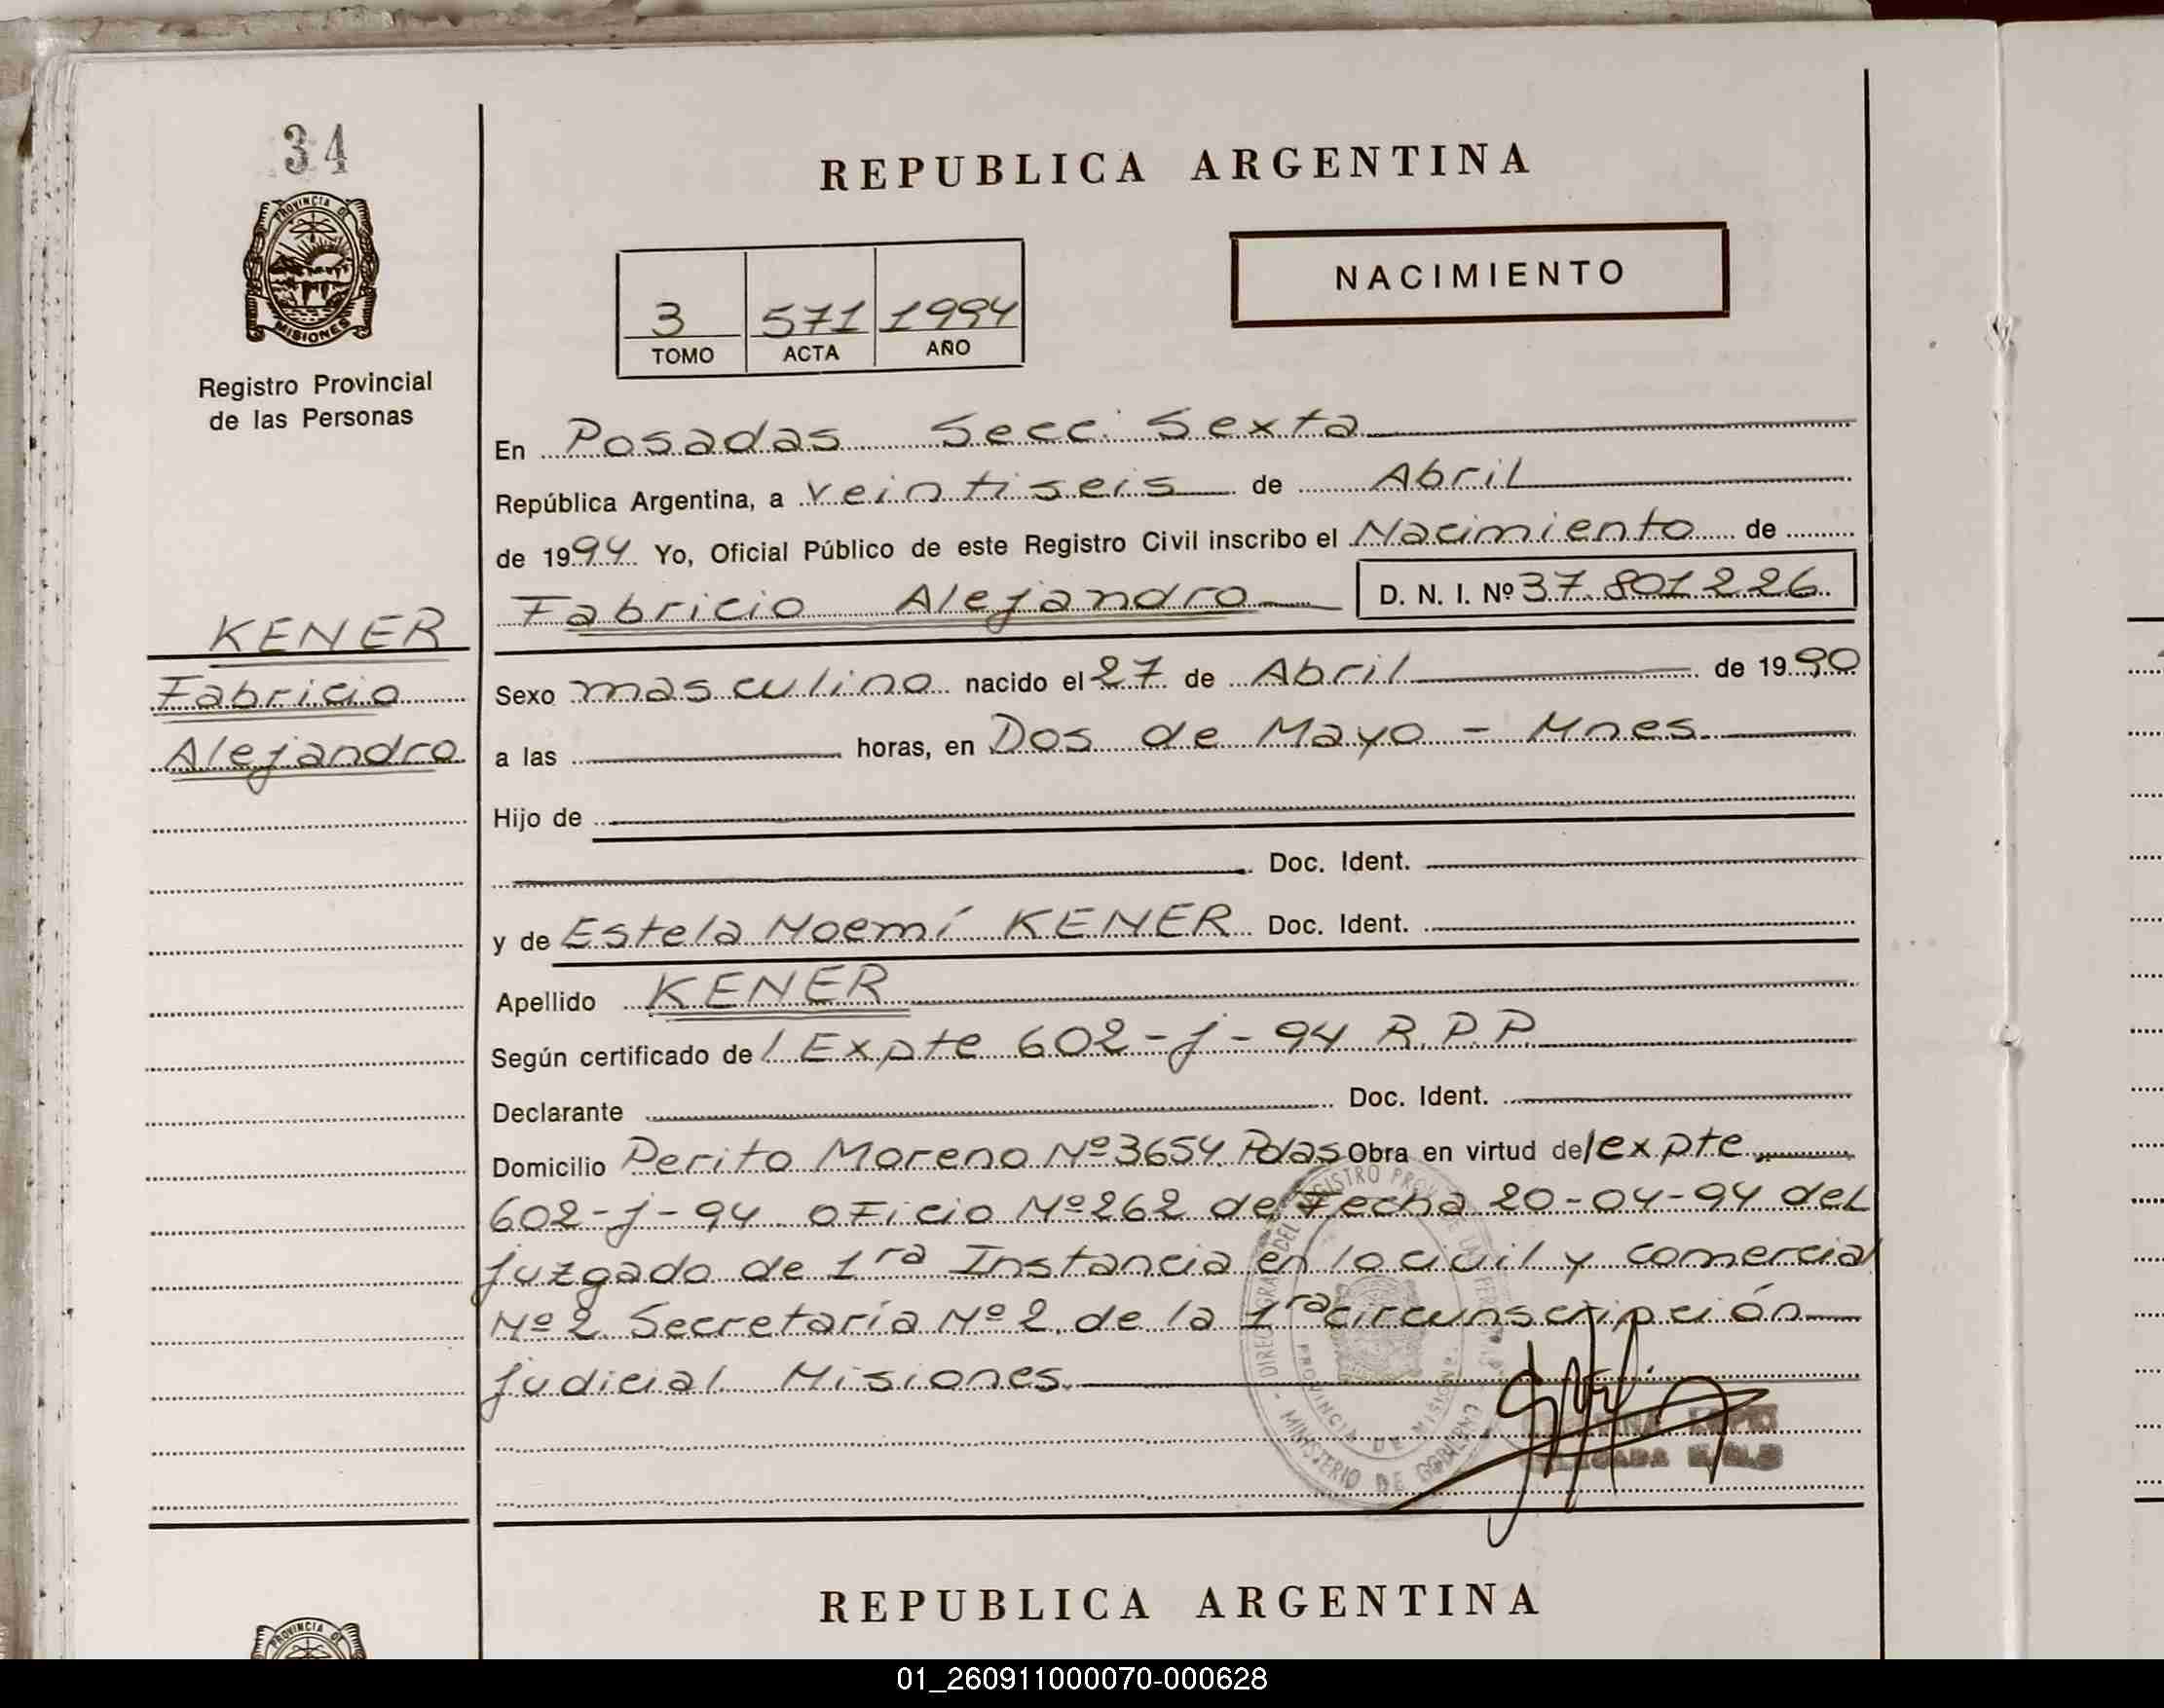 34
PROVINCIA DE
MISIONES
Registro Provincial
de las Personas
KENER
Fabricio
Alejandro
REPUBLICA ARGENTINA
NACIMIENTO
3 571 1994
TOMO ACTA AÑO
En Posadas Secc. Sexta
República Argentina, a veintiseis de Abril
de 1994 Yo, Oficial Público de este Registro Civil inscribo el Nacimiento de
Fabricio Alejandro D. N. I. Nº 37.801226.
Sexo masculino nacido el 27 de Abril de 1990
a las horas, en Dos de Mayo - Mnes.
Hijo de
Doc. Ident.
y de Estela Noemí KENER Doc. Ident.
Apellido KENER
Según certificado de l Expte 602-j-94 R.P.P.
Declarante Doc. Ident.
Domicilio Perito Moreno Nº 3654. Pdas Obra en virtud del expte
602-j-94 oficio Nº 262 de Fecha 20-04-94 del
juzgado de 1ra Instancia en lo civil y comercial
Nº 2 Secretaría Nº 2. de la 1ra circunscripción
judicial Misiones.
PROVINCIA DE MISIONES
MINISTERIO DE GOBIERNO
REPUBLICA ARGENTINA
PROVINCIA DE
01_260911000070-000628